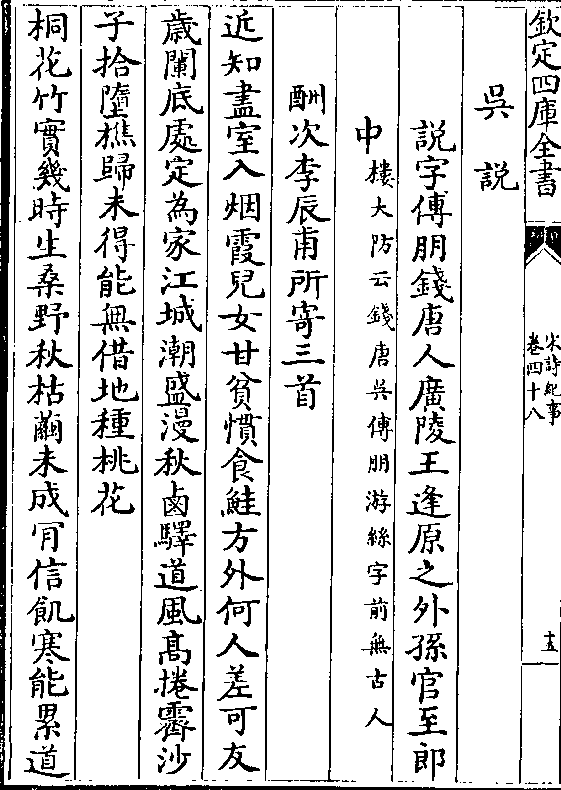 欽定四庫全書
宋詩紀事
卷四十八
十五
吳説
説字傅朋錢唐人廣陵王逢原之外孫官至郎
中樓大防云錢唐吳傅朋游絲字前無古人
酬次李辰甫所寄三首
近知盡室入烟霞兒女甘貧慣食鮭方外何人差可友
歲闌底處定為家江城潮盛漫秋鹵驛道風高捲霽沙
子拾墮樵歸未得能無借地種桃花
桐花竹實幾時生桑野秋枯繭未成肎信飢寒能累道